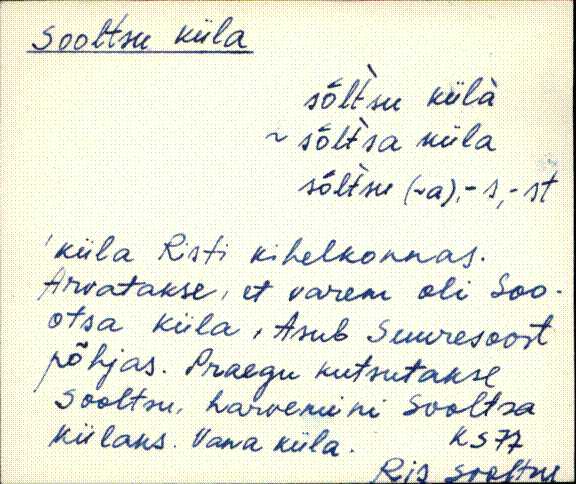 Sooltsu küla
sṓl̀tsu külà
~ sṓl̀tsa küla
sṓl̀tsu (-a),-s,-st
'küla Risti kihelkonnas.
Arvatakse, et varem oli Soo-
otsa küla, Asub Suuresoost
põhjas. Praegu kutsutakse
Sooltsu, harvemini Sooltsa
külaks. Vana küla. KS77
Ris Sooltsu